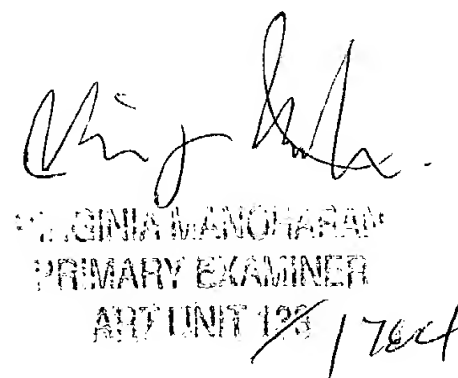 VIRGINIA MANOHARAN
PRIMARY EXAMINER
ART UNIT 123/1764